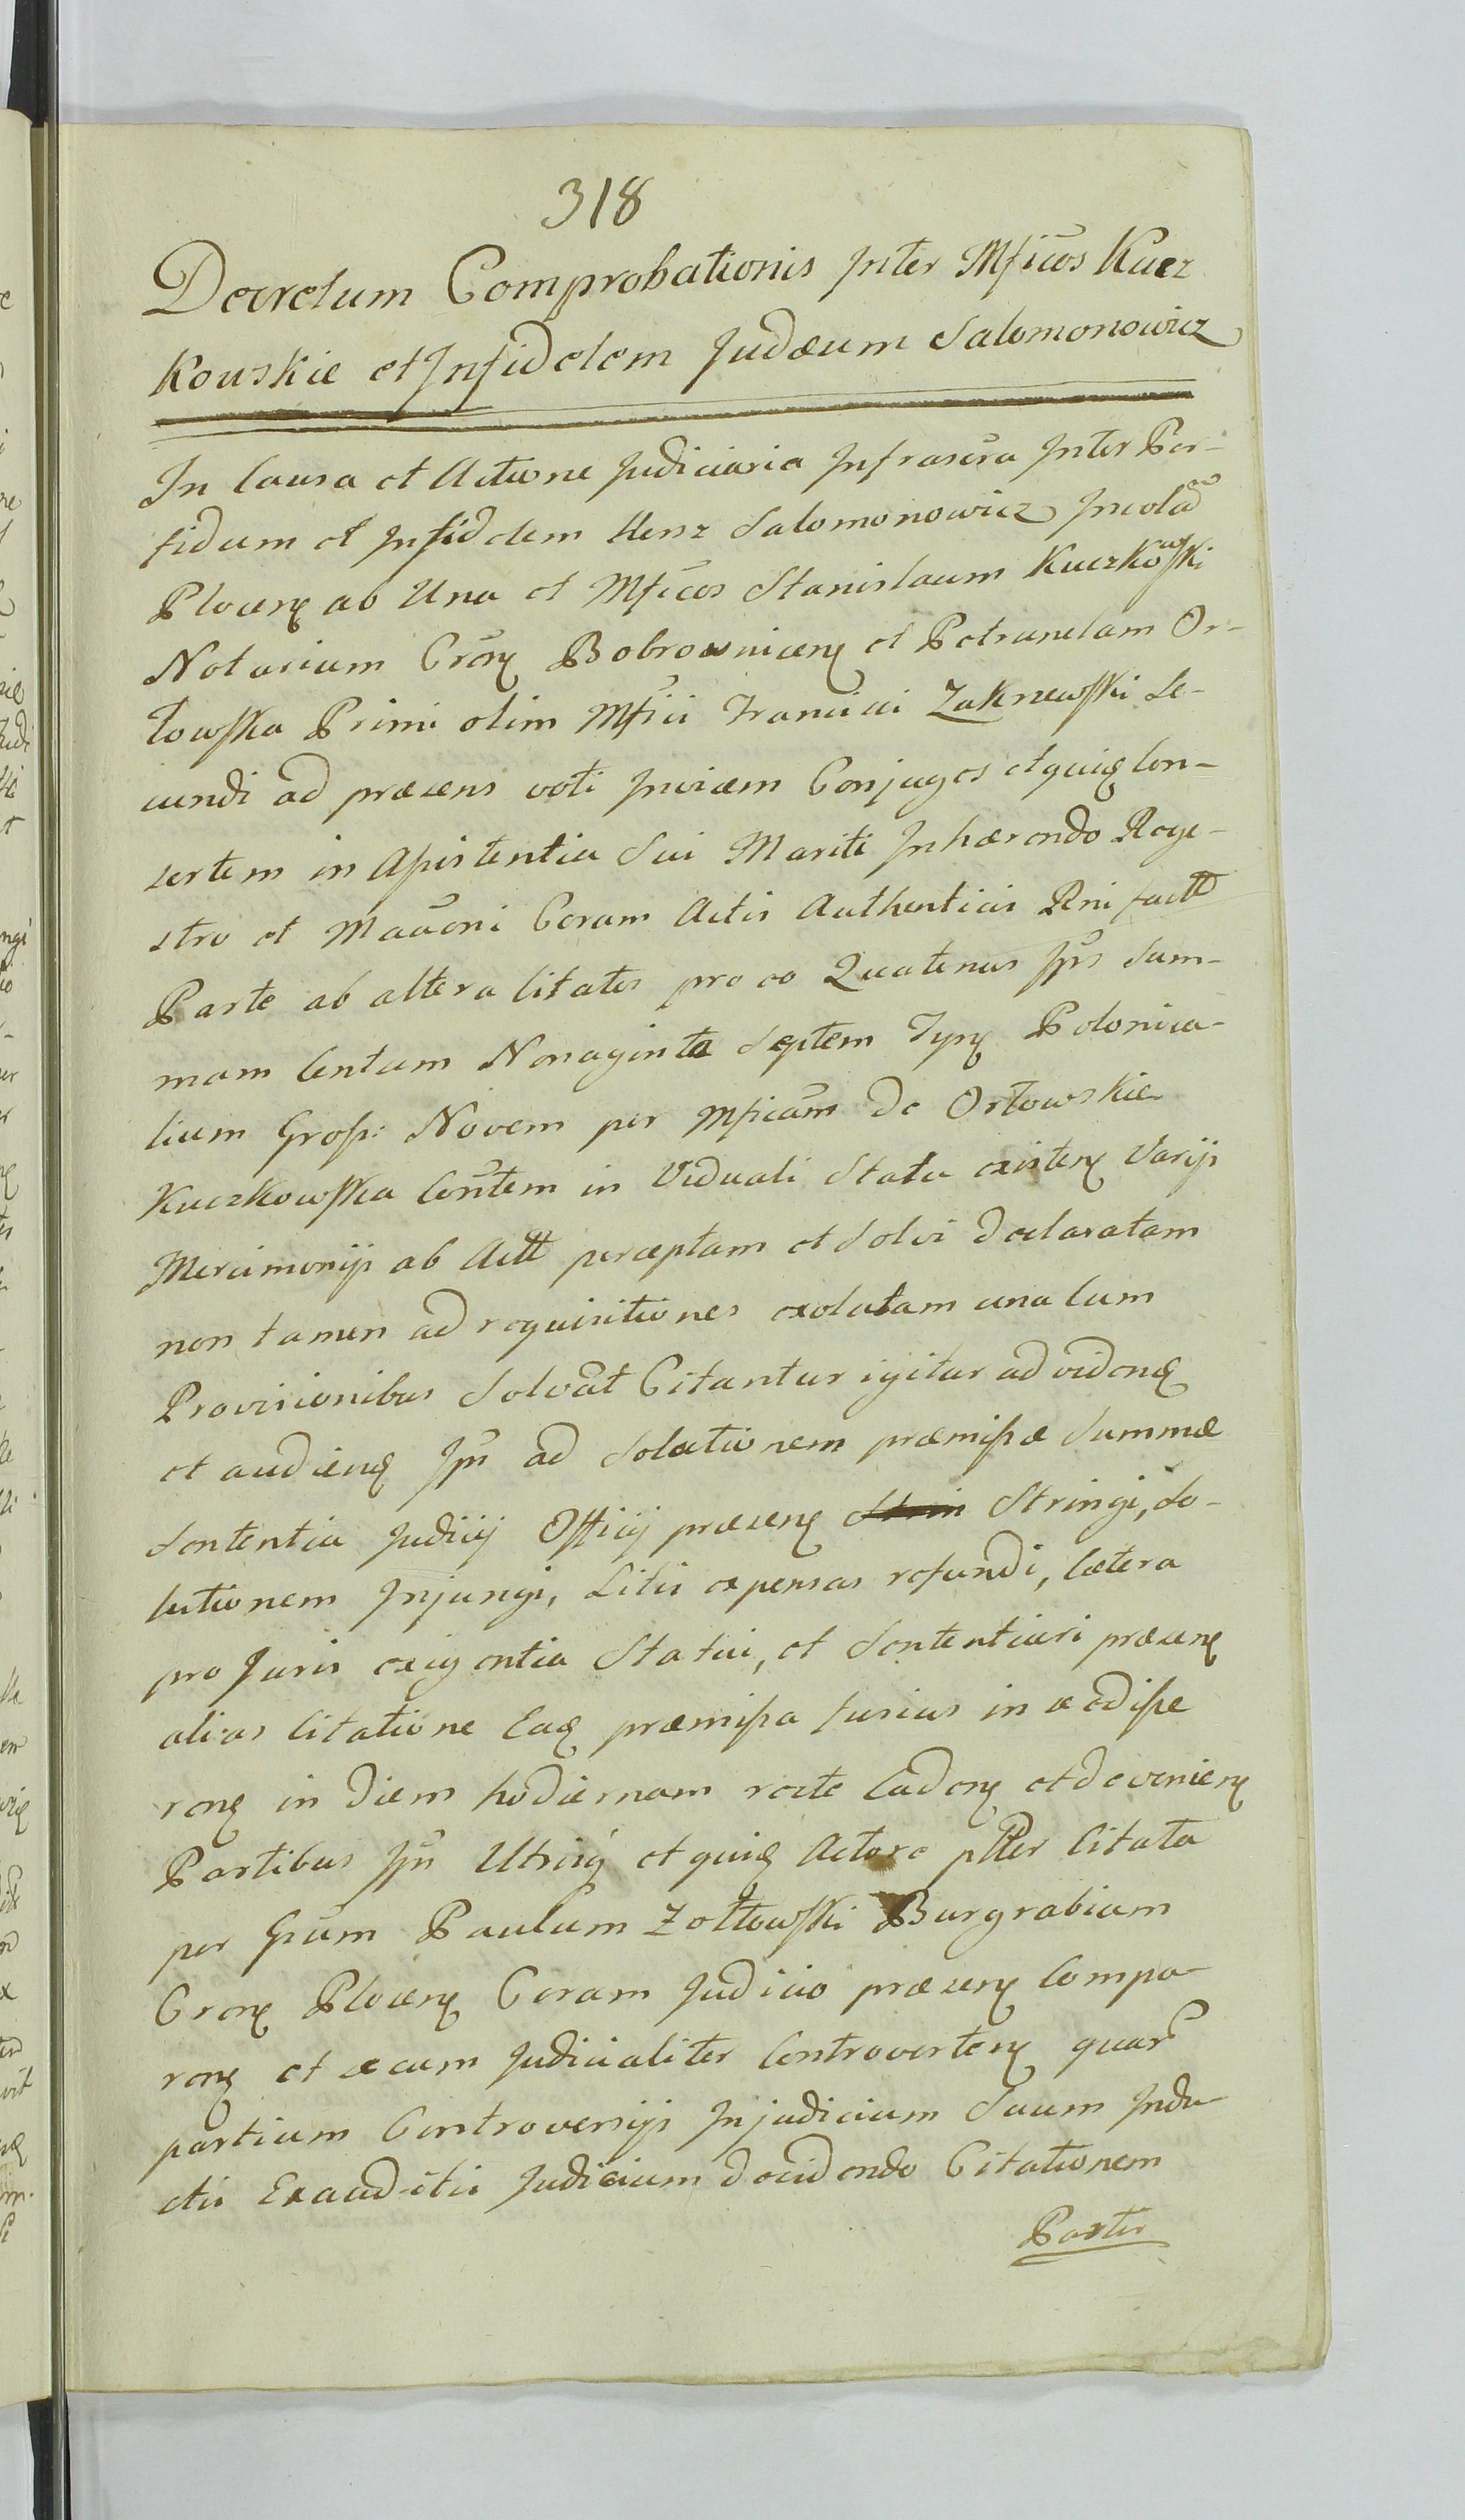 318
Decretum Comprobationis Inter Mficos Kucz
kowskie et Infidelem Judæum Salomonowicz
In Causa et Actione Judiciaria Infrascra Inter Per-
fidum et Infidelem Henz Salomonowicz Incolam
Plocen ab Una et Mficos Stanislaum Kuczkowski
Notarium Cren Bobrownicen et Petrunelam Or-
łowska Primi olim Mfici Francisci Zakrzewski Se-
cundi ad præsens voti Invicem Conjuges et quidem Con-
sortem in Assistentia Sui Mariti Inhærendo Rege-
stro et Maaoni Coram Actis Authenticis Rni factt
Parte ab altera Citatos pro eo Quatenus Ipsi Sum-
mam Centum Nonaginta Septem Tynf Polonica-
lium Gross: Novem per Mficam de Orłowskie
Kuczkowska Consortem in Viduali Statu existen Varijs
Mercimonijs ab Actt perceptam et Solvi declaratam
non tamen ad requisitiones exolutam una Cum
Provisionibus Solvat Citantur igitur ad videndum
et audiendum Ipsi ad Solutionem præmissæ Summæ
Sententia Judicij Officij præsen Strin Stringi, So-
lutionem Injungi, Litis expensas refundi, Cætera
pro Juris exigentia Statui, et Sententiari præsen
alias Citatione Eaq præmissa fusius in se disse
ren in diem hodiernam recte Caden et devenien
Partibus Ipsis Utrisq et quidem Actore pltter Citata
per Gsum Paulum Zołtowski Burgrabium
Cren Plocen Coram Judicio præsen Compa-
ren et secum Judicialiter Controverten quar
partium Controversijs In judicium Suum Indu-
ctis Exauditis Judicium decidendo Citationem
Partis